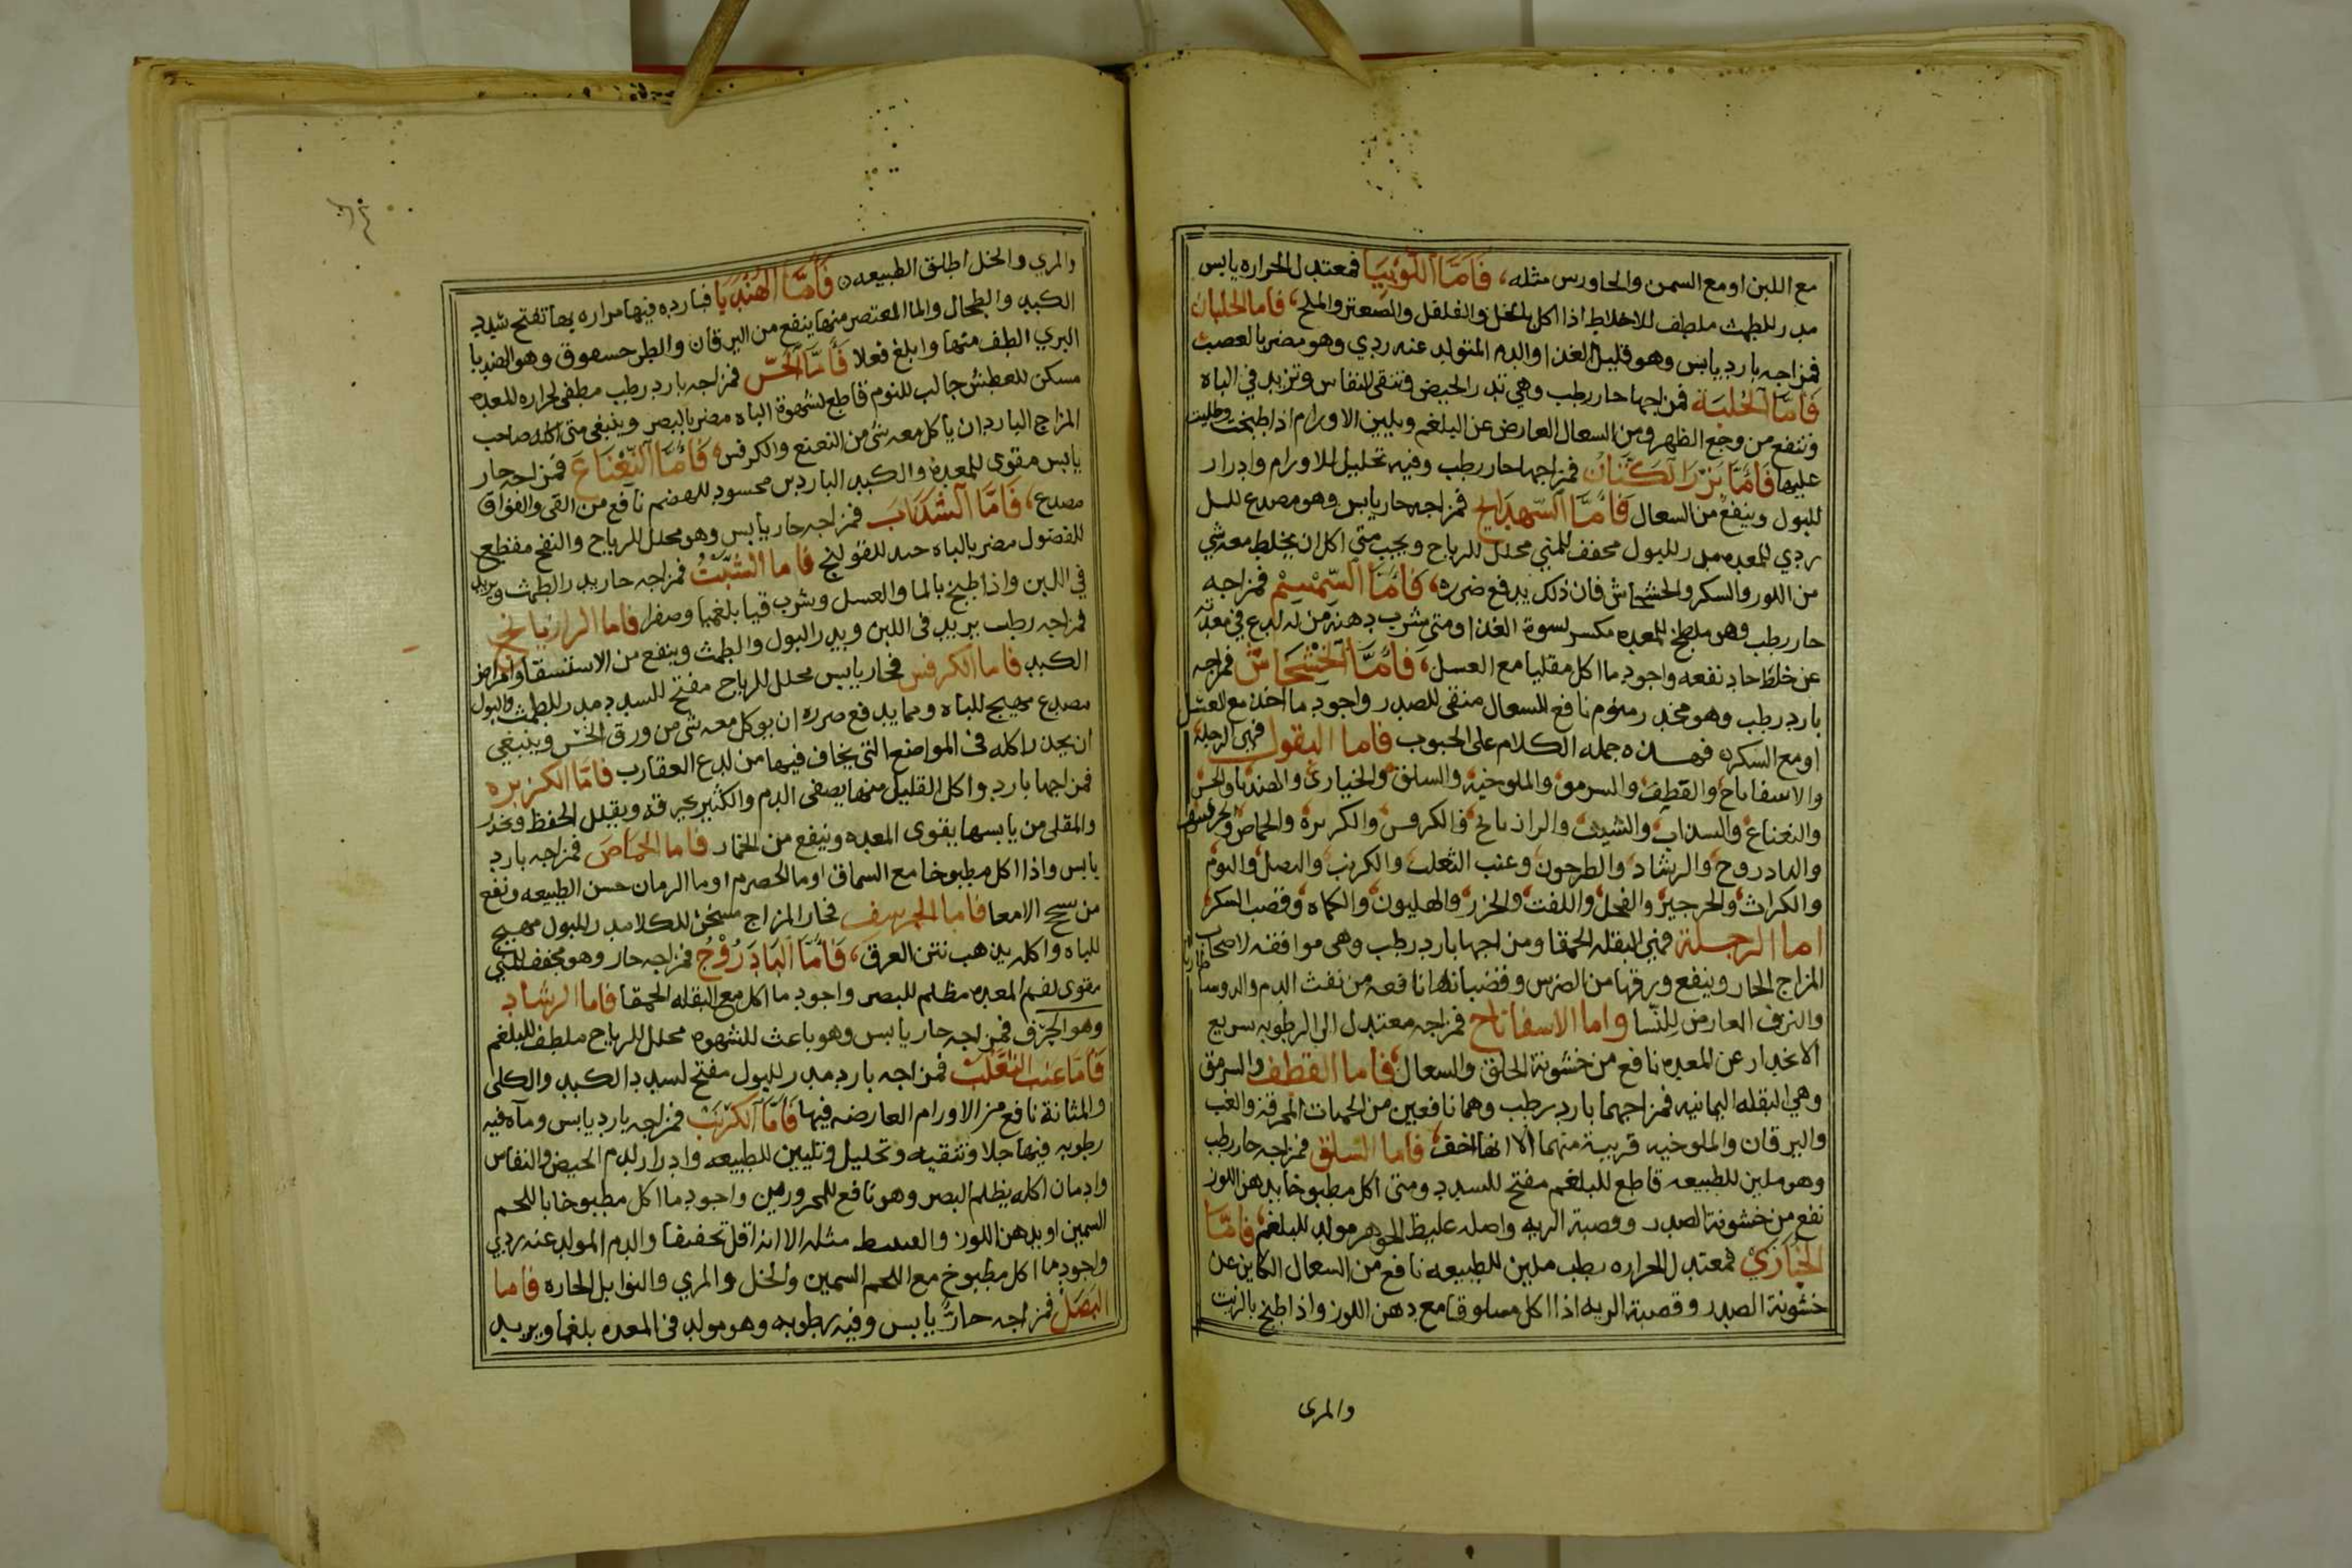 مع اللبن او مع السمن والجاورس مثله، فَأَمَّا اللُّوبِيَا فمعتدل الحراره يابس
مدر للطمث ملطف للاخلاط اذا اكل بالخل والفلفل والصعتر والملح، فاما الجلبان
فمزاجه بارد يابس وهو قليل الغذا والدم المتولد عنه ردي وهو مضر بالعصب
فَأَمَّا الْحُلْبَة فمزاجها حار رطب وهي تدر الحيض وتنقى النفاس وتزيد في الباه
وتنفع من وجع الظهر ومن السعال العارض عن البلغم ويلين الاورام اذا طبخت وطليت
عليها فَأَمَّا بَزْرَ الْكَتَّان فمزاجها حار رطب وفيه تحليل للاورام وادرار
للبول وينفع من السعال فَأَمَّا السّهدَانج فمزاجه حار يابس وهو مصدع للـل
ردي للمعده مدر للبول مجفف للمني محلل للرياح ويجب متى اكل ان يخلط معه شي
من اللوز والسكر والخشخاش فان ذلك يدفع ضرره، فَأَمَّا السِّمْسِمْ فمزاجه
حار رطب وهو ملطخ للمعده مكسر لسوة الغذا ومتى شرب دهنه من له لدع في معدته
عن خلط حاد نفعه واجود ما اكل مقليا مع العسل، فَأَمَّا الْخَشْخَاش فمزاجه
بارد رطب وهو مخدر منوم نافع للسعال منقى للصدر واجود ما اخذ مع العسل
او مع السكر ه فهذه جمله الكلام على الحبوب فاما البقول فهي الرجلة
والاسفاناخ والقطف والسرمق والملوخيه والسلق والخبازى والهندبا والخس
والنعناع والسذاب والشبث والرازيانج والكرفس والكزبره والحماض والحرشف
والبادروج والرشاد والطرخون وعنب الثعلب والكرنب والبصل والثوم
والكراث والجرجير والفجل واللفت والجزر والهليون والكماه وقصب السكر
اما الرجلة فهي البقله الحمقا ومزاجها بارد رطب وهي موافقه لاصحاب
المزاج الحار وينفع ورقها من الضرس وقضبانها نافعه من نفث الدم والدوسنطاريا
والنزف العارض للنّسا واما الاسفاناخ فمزاجه معتدل الى الرطوبه سريع
الانحدار عن المعده نافع من خشونة الحلق والسعال فاما القطف والسرمق
وهي البقله اليمانيه فمزاجهما بارد رطب وهما نافعين من الحميات المحرقة والغب
واليرقان والملوخيه قريبة منهما الا انها اخف، فاما السلق فمزاجه حار رطب
وهو ملين للطبيعه قاطع للبلغم مفتح للسدد ومتى اكل مطبوخا بدهن اللوز
نفع من خشونة الصدر وقصبة الريه واصله غليظ الجوهر مولد للبلغم، فَأَمَّا
الخُبّازي فمعتدل الحراره رطب ملين للطبيعه نافع من السعال الكاين عن
خشونة الصدر وقصبة الريه اذا اكل مسلوقا مع دهن اللوز واذا طبخ بالزيت
والمرى
والمري والخل اطلق الطبيعه ه فَأَمَّا الْهِنْدَبَا فبارده فيها مراره بها تفتح سدد
الكبد والطحال والما المعتصر منها ينفع من اليرقان والطرحسقوق وهو الهندبا
البري الطف منها وابلغ فعلا فَأَمَّا الْخَسّ فمزاجه بارد رطب مطفى لحراره المعده
مسكن للعطش جالب للنوم قاطع لشهوة الباه مضر بالبصر وينبغى متى اكله صاحب
المزاج البارد ان ياكل معه شي من النعنع والكرفس، فَأَمَّا النَّعْنَاعَ فمزاجه حار
يابس مقوى للمعده والكبد الباردين محسود للهضم نافع من القى والفواق
مصدع، فَأَمَّا السّدَاب فمزاجه حار يابس وهو محلل للرياح والنفخ مقطع
للفضول مضر بالباه جيد للقولنج فاما الشِّبِّتُ فمزاجه حار يدر الطمث ويزيد
في اللبن واذا طبخ بالما والعسل وشرب قيا بلغما وصفرا فاما الرازيانج
فمزاجه رطب يزيد فى اللبن ويدر البول والطمث وينفع من الاستسقا وامراض
الكبد فاما الكرفس فحار يابس محلل للرياح مفتح للسدد مدر للطمث والبول
مصدع مهيج للباه ومما يدفع ضرره ان يوكل معه شى من ورق الخس وينبغي
ان يحذر اكله فى المواضع التى يخاف فيها من لدع العقارب فَأَمَّا الكزبره
فمزاجها بارد واكل القليل منها يصفى الدم والكثير يحرقه ويقلل الحفظ ويخدر
والمقلى من يابسها يقوى المعده وينفع من الخمار فاما الحماض فمزاجه بارد
يابس واذا اكل مطبوخا مع السماق او ما الحصرم او ما الرمان حبس الطبيعه ونفع
من سحج الامعا فاما الحرشف فحار المزاج مسخن للكلا مدر للبول مهيج
للباه واكله يذهب نتن العرق، فَأَمَّا الْبَادَرُوْجُ فمزاجه حار وهو مجفف للمني
مقوى لفم المعده مظلم للبصر واجود ما اكل مع البقله الحمقا فاما الرشاد
وهو الحُرْف فمزاجه حار يابس وهو باعث للشهوه محلل للرياح ملطف للبلغم
فَأَمَّا عنب الثعلب فمزاجه بارد مدر للبول مفتح لسدد الكبد والكلى
والمثانة نافع من الاورام العارضه فيها فَأَمَّا الْكَرْنَبْ فمزاجه بارد يابس ومآه فيه
رطوبه فيها جلا وتنقيه وتحليل وتليين للطبيعه وادرار لدم الحيض والنفاس
وادمان اكله يظلم البصر وهو نافع للمحرورين واجود ما اكل مطبوخا باللحم
السمين او بدهن اللوز والقنبيط مثله الا انه اقل تجفيفا والدم المولد عنه ردي
واجود ما اكل مطبوخ مع اللحم السمين والخل والمري والتوابل الحاره فاما
البَصَلْ فمزاجه حارٌّ يابس وفيه رطوبه وهو مولد فى المعده بلغما ويزيد